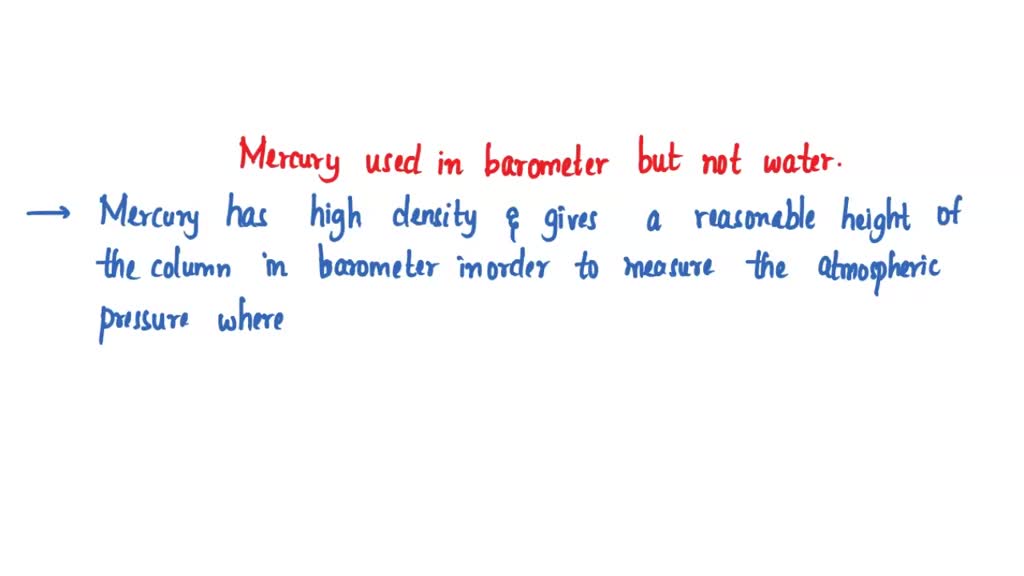 Mercury used in barometer but not water.
→ Mercury has high density & gives a reasonable height of
the column in barometer inorder to measure the atmospheric
pressure where